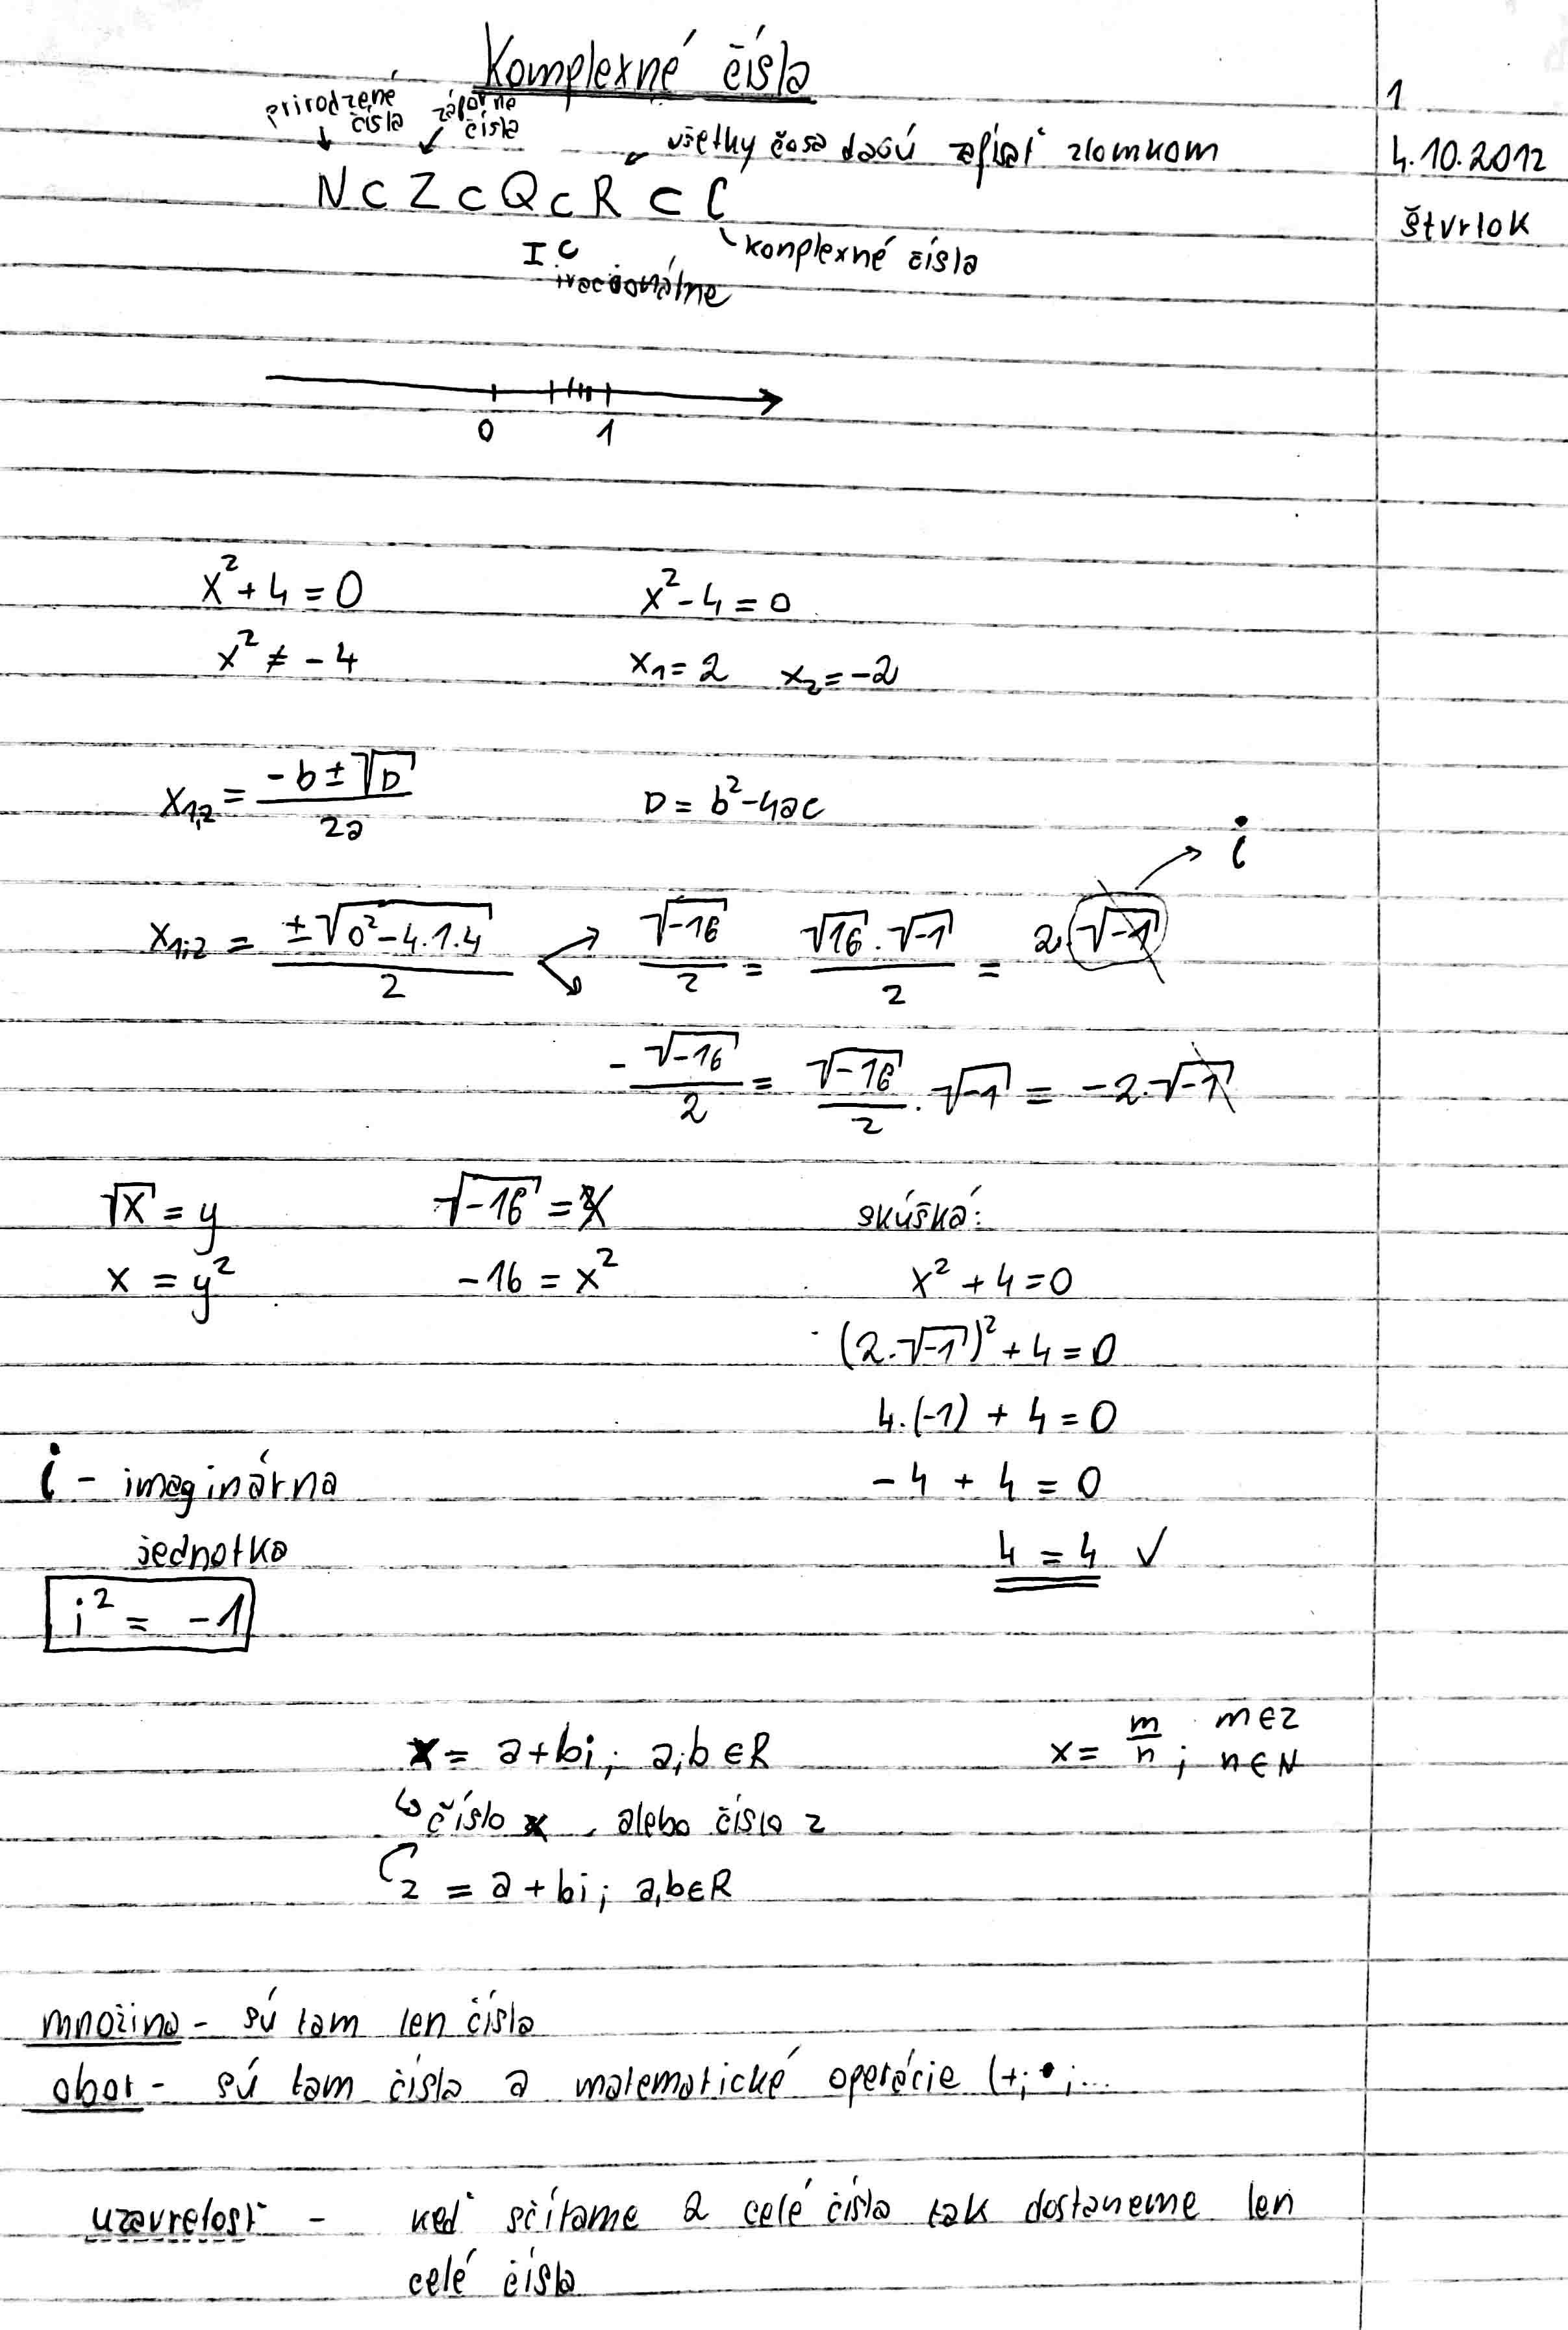 Komplexné čísla
1
4.10.2012
štvrtok
prirodzené čísla
záporné čísla
všetky čo sa dajú zapísať zlomkom
N ⊂ Z ⊂ Q ⊂ R ⊂ C
komplexné čísla
I ⊂
iracionálne
0 1
x² + 4 = 0
x² - 4 = 0
x² ≠ - 4
x₁ = 2 x₂ = -2
x₁,₂ = (-b ± √D) / 2a
D = b² - 4ac
i
x₁;₂ = (±√(0² - 4.1.4)) / 2
√-16 / 2 = (√16 . √-1) / 2 = 2.√-1
- √-16 / 2 = √-16 / 2 . √-1 = -2.√-1
√x = y
√-16 = x
skúška:
x = y²
-16 = x²
x² + 4 = 0
(2.√-1)² + 4 = 0
4.(-1) + 4 = 0
i - imaginárna
- 4 + 4 = 0
jednotka
4 = 4 ✓
i² = -1
x = a + bi; a;b ∈ R
x = m/n; m ∈ Z n ∈ N
číslo x alebo číslo z
z = a + bi; a,b ∈ R
množina - sú tam len čísla
obor - sú tam čísla a matematické operácie (+; •; ...
uzavretosť - keď sčítame 2 celé čísla tak dostaneme len
celé čísla